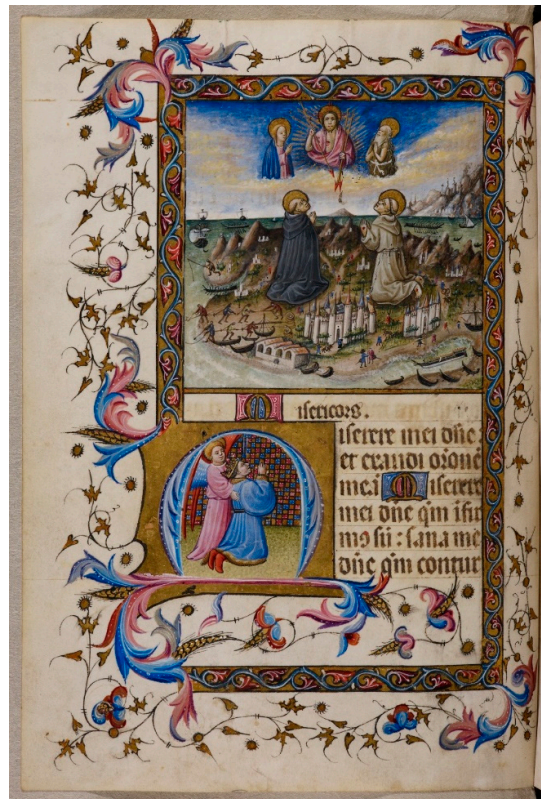 Misericors.
Miserere mei dñe :
et exaudi orōne
meā Miserere
mei dñe qm̄ īfir
mꝰ sū : sana me
dñe qm̄ contur